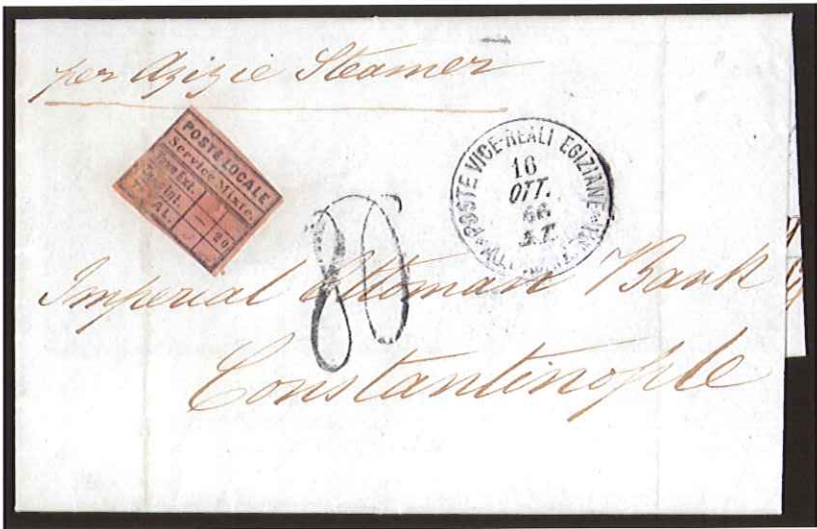 per Azizie Steamer
POSTE LOCALE
Service Mixte.
Taxe Ext. 1
Int. 20
TOTAL.
POSTE VICE-REALI EGIZIANE
16
OTT.
66
80
Imperial Ottoman Bank
Constantinople